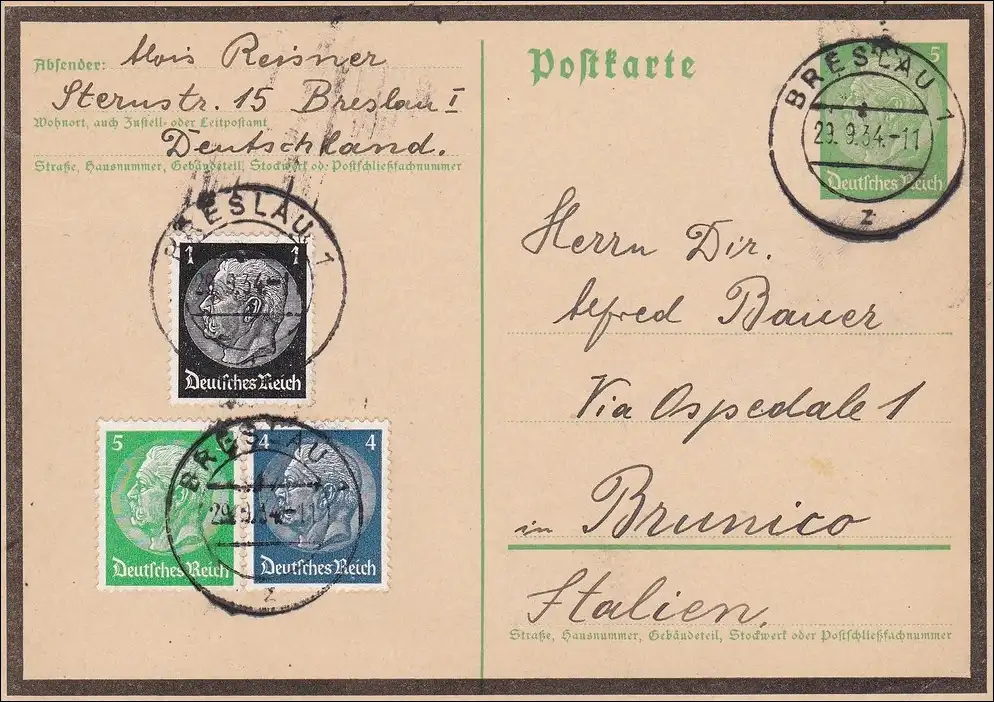 Absender: Alois Reisner
Sternstr. 15 Breslau I
Wohnort, auch Zustell- oder Leitpostamt
Deutschland.
Straße, Hausnummer, Gebäudeteil, Stockwerk od. Postschließfachnummer
Postkarte
5
Deutsches Reich
BRESLAU 1
29.9.34.-11
z
BRESLAU 1
29.9.34.-11
1 1
Deutsches Reich
BRESLAU 1
29.9.34.-11
z
5
Deutsches Reich
4 4
Deutsches Reich
Herrn Dir.
Alfred Bauer
Via Ospedale 1
in Brunico
Italien.
Straße, Hausnummer, Gebäudeteil, Stockwerk oder Postschließfachnummer